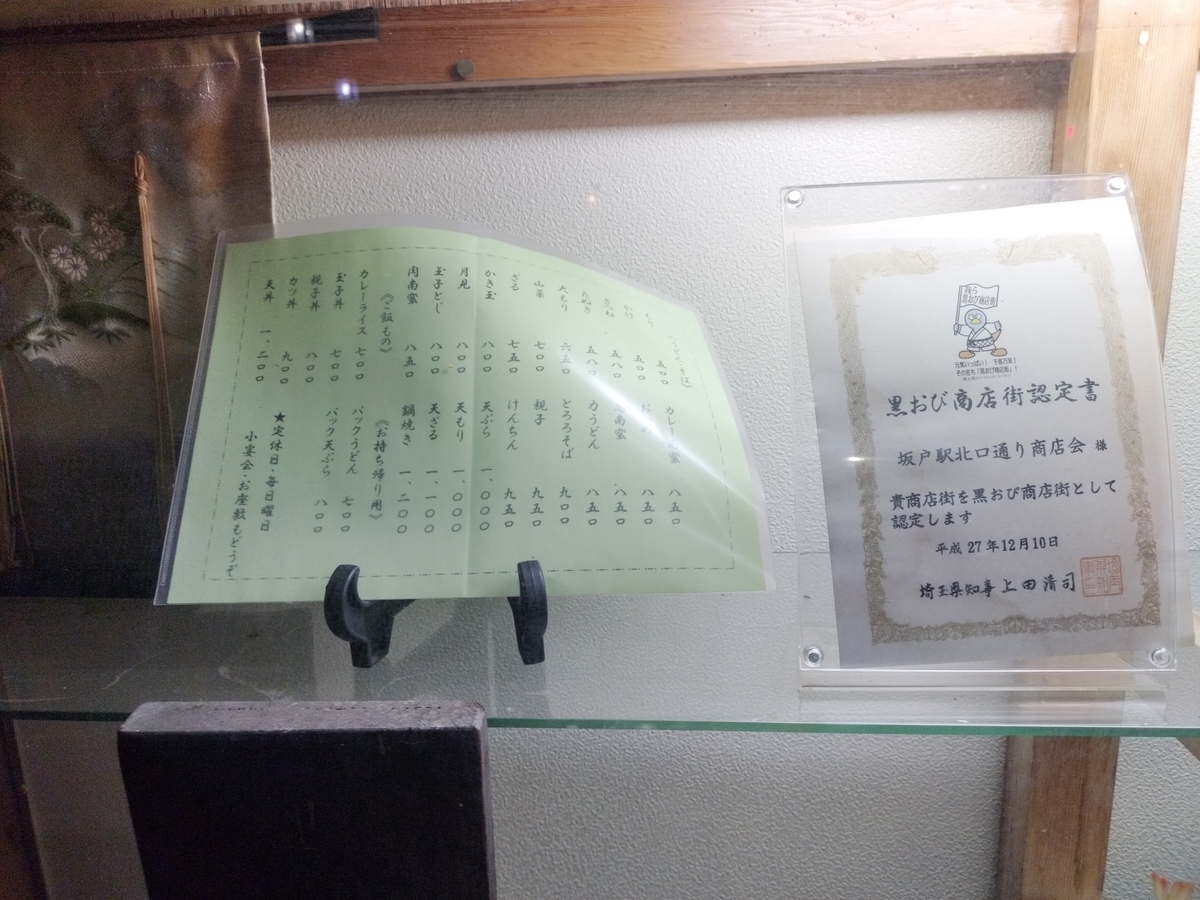 《うどん・そば》
もり 五〇〇
かけ 五〇〇
きつね 五八〇
たぬき 五八〇
大もり 六五〇
山菜 七〇〇
ざる 七五〇
かき玉 八〇〇
月見 八〇〇
玉子とじ 八〇〇
肉南蛮 八五〇
《ご飯もの》
カレーライス 七〇〇
玉子丼 七〇〇
親子丼 八〇〇
カツ丼 九〇〇
天丼 一、二〇〇
カレー南蛮 八五〇
八五〇
南蛮 八五〇
力うどん 八五〇
とろろそば 九〇〇
親子 九五〇
けんちん 九五〇
天ぷら 一、〇〇〇
天もり 一、〇〇〇
天ざる 一、一〇〇
鍋焼き 一、二〇〇
《お持ち帰り用》
パックうどん 七〇〇
パック天ぷら 八〇〇
★定休日・毎日曜日
小宴会・お座敷もどうぞ
黒おび商店街
元気いっぱい! 千客万来!
その名も「黒おび商店街」!
黒おび商店街認定書
坂戸駅北口通り商店会 様
貴商店街を黒おび商店街として
認定します
平成27年12月10日
埼玉県知事 上田清司